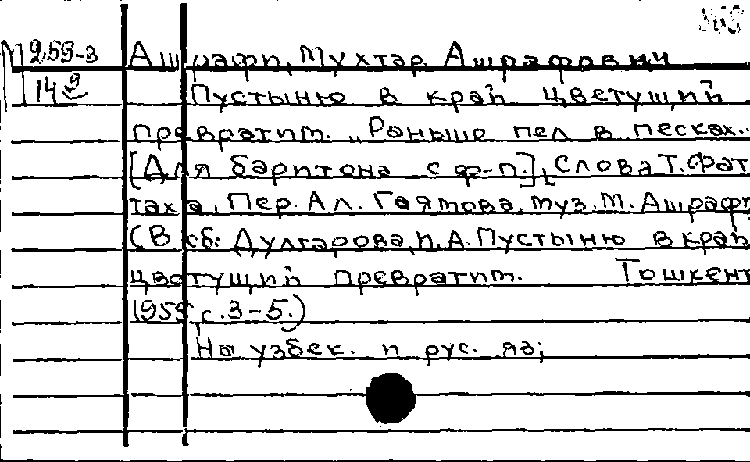 М 259-3 Ашрафи, Мухтар Ашрафович
14 Пустыню в край цветущий
превратит. „Раньше пел в песках..
[Для баритона с ф-п.], Слова Т. Фат
таха, Пер. Ал. Гаямова, муз. М. Ашрафи
(В сб: Дулгарова, п. А. Пустыню в край
цветущий превратит. Тошкент
1955, с. 3-5.)
На узбек. и рус. яз;